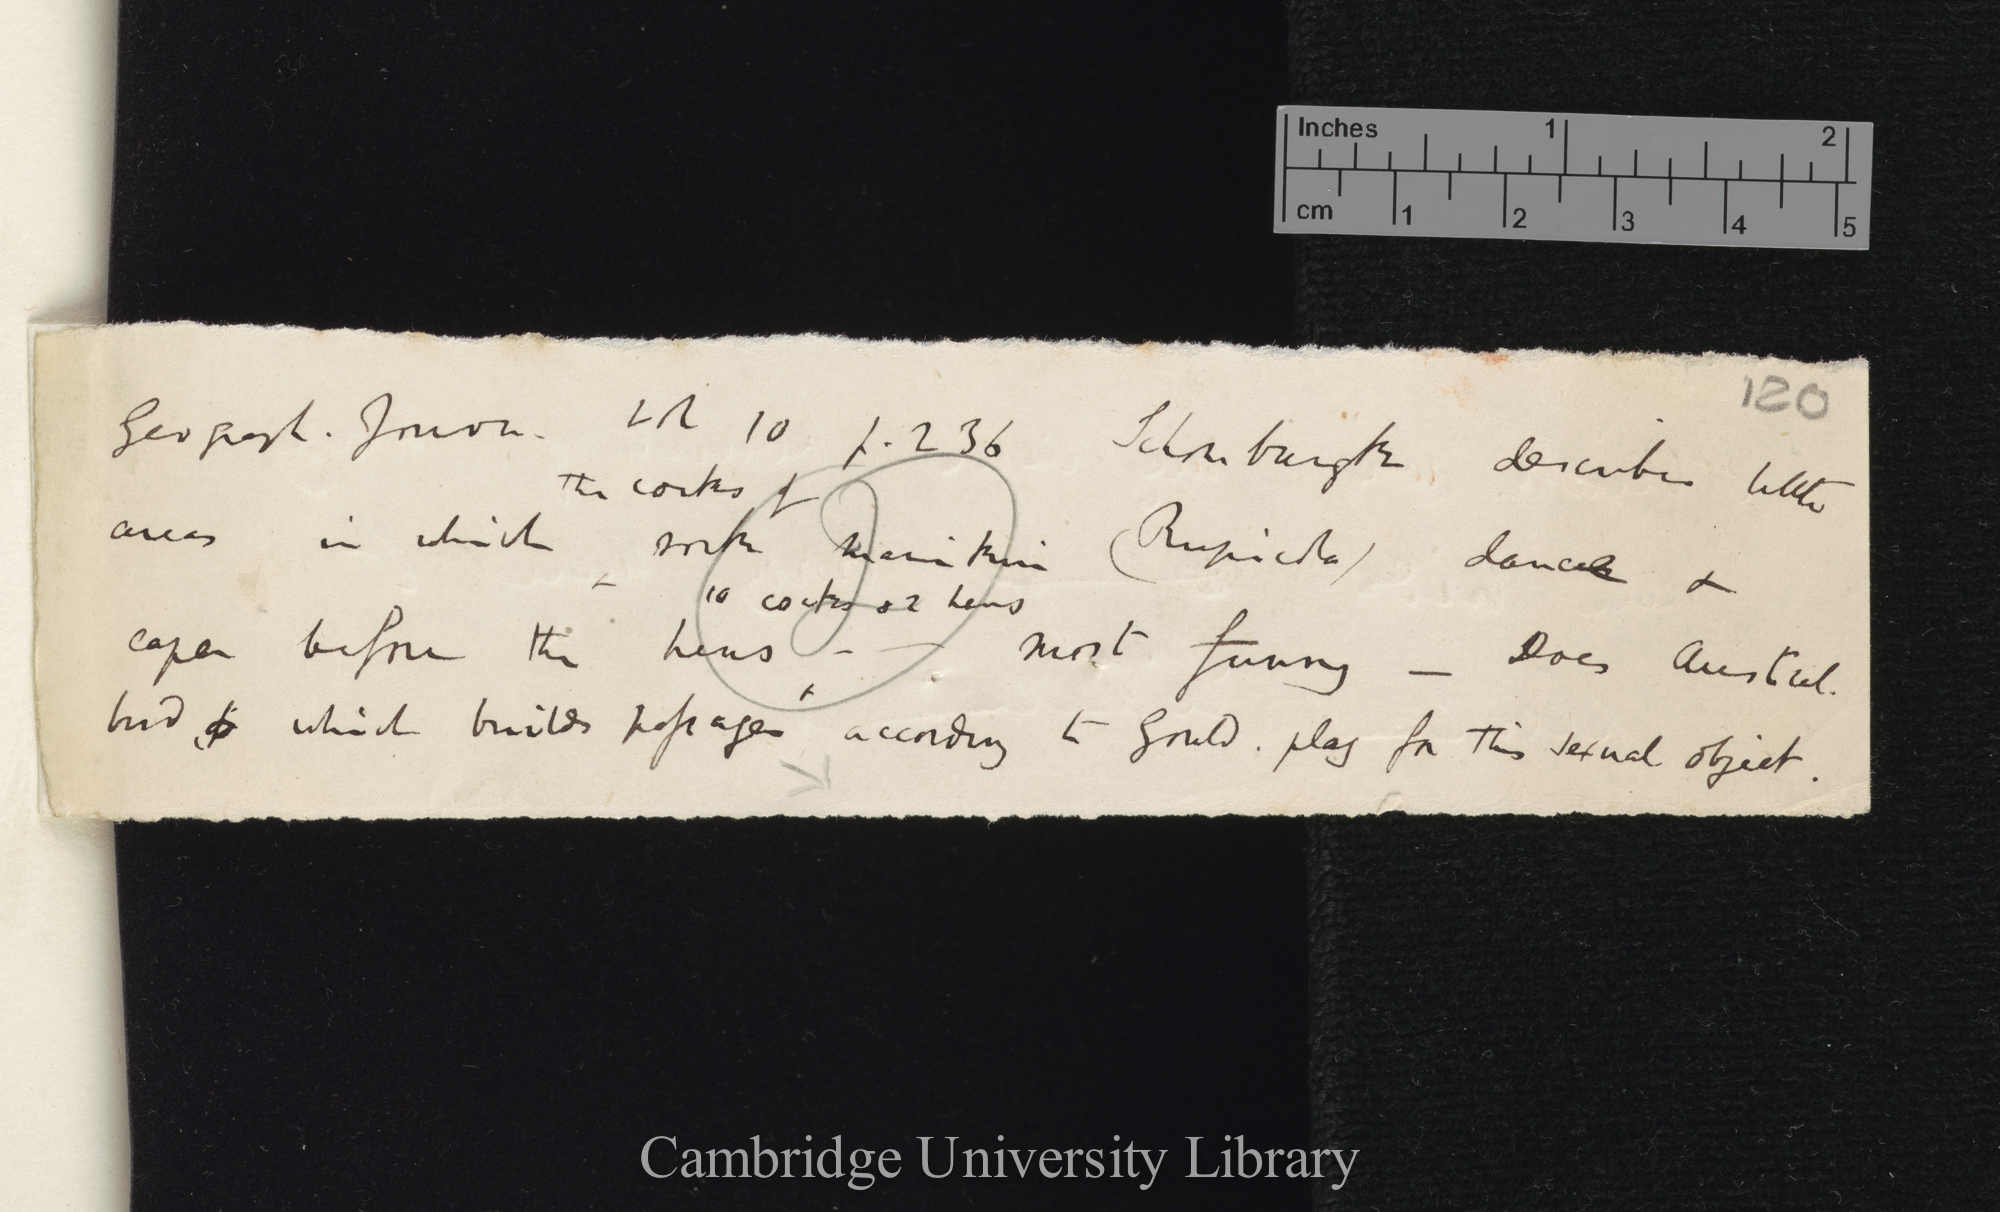 Inches 1 2
cm 1 2 3 4 5
120
Geograph. Journ. Vol 10 p. 236 Schomburgk describes little
the cocks of
areas in which rock manikin (Rupicola) dance &
10 cocks & 2 hens
caper before the hens - — most funny — Does Austral.
bird which builds passages according to Gould. play for this sexual object.
Cambridge University Library